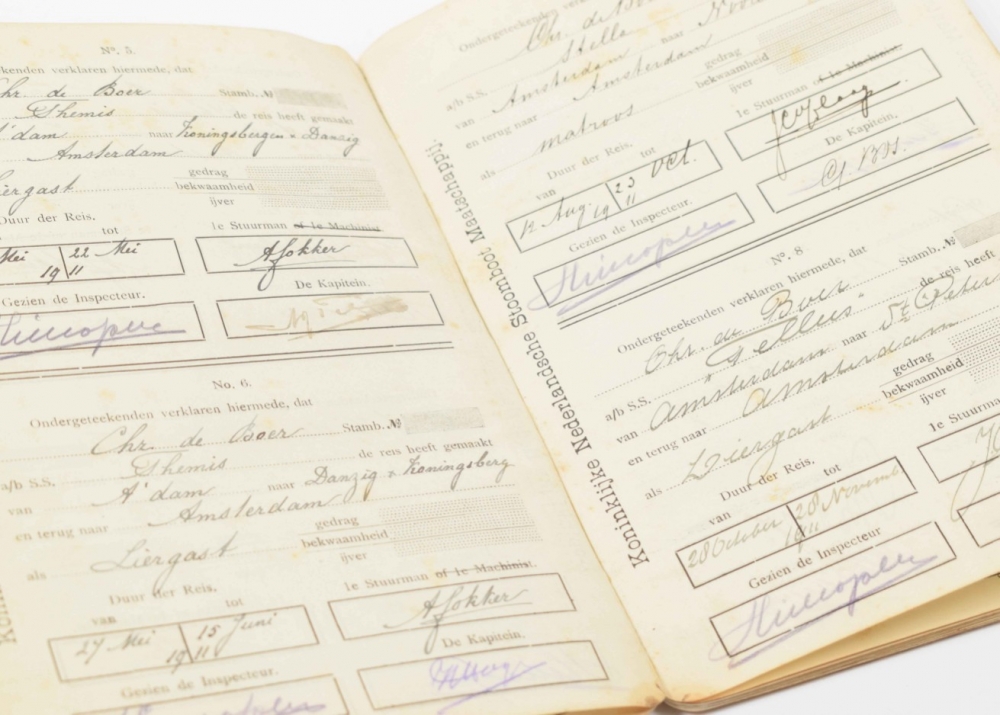 Nº. 5.
kenden verklaren hiermede, dat
Chr. de Boer Stamb. №
Themis de reis heeft gemaakt
A'dam naar Koningsbergen & Danzig
Amsterdam
iergast gedrag
bekwaamheid
ijver
Duur der Reis.
tot
Mei 22 Mei
19 11
1e Stuurman of 1e Machinist
A Fokker
Gezien de Inspecteur.
De Kapitein.
No. 6.
Ondergeteekenden verklaren hiermede, dat
Chr. de Boer Stamb. №
a/b S.S. Themis de reis heeft gemaakt
van A'dam naar Danzig & Koningsberg
en terug naar Amsterdam
als Liergast gedrag
bekwaamheid
ijver
Duur der Reis.
van tot
27 Mei 15 Juni
19 11
1e Stuurman of 1e Machinist.
A Fokker
Gezien de Inspecteur.
De Kapitein.
Koninklijke Nederlandsche Stoomboot Maatschappij.
Ondergeteekenden
Chr. de Bo
a/b S.S. Stella
van Amsterdam naar
en terug naar Amsterdam
als matroos
gedrag
bekwaamheid
ijver
Duur der Reis.
van tot
12 Aug 23 Oct.
19 11
1e Stuurman of 1e Machinis
De Kapitein.
Gezien de Inspecteur.
Nº. 8
Ondergeteekenden verklaren hiermede, dat
Chr. de Boer Stamb. №
a/b S.S. Tellus de reis heeft
van Amsterdam naar St Peter
en terug naar Amsterdam
als Liergast
gedrag
bekwaamheid
ijver
Duur der Reis.
van tot
28 October 28 November
19 11
1e Stuurma
Gezien de Inspecteur